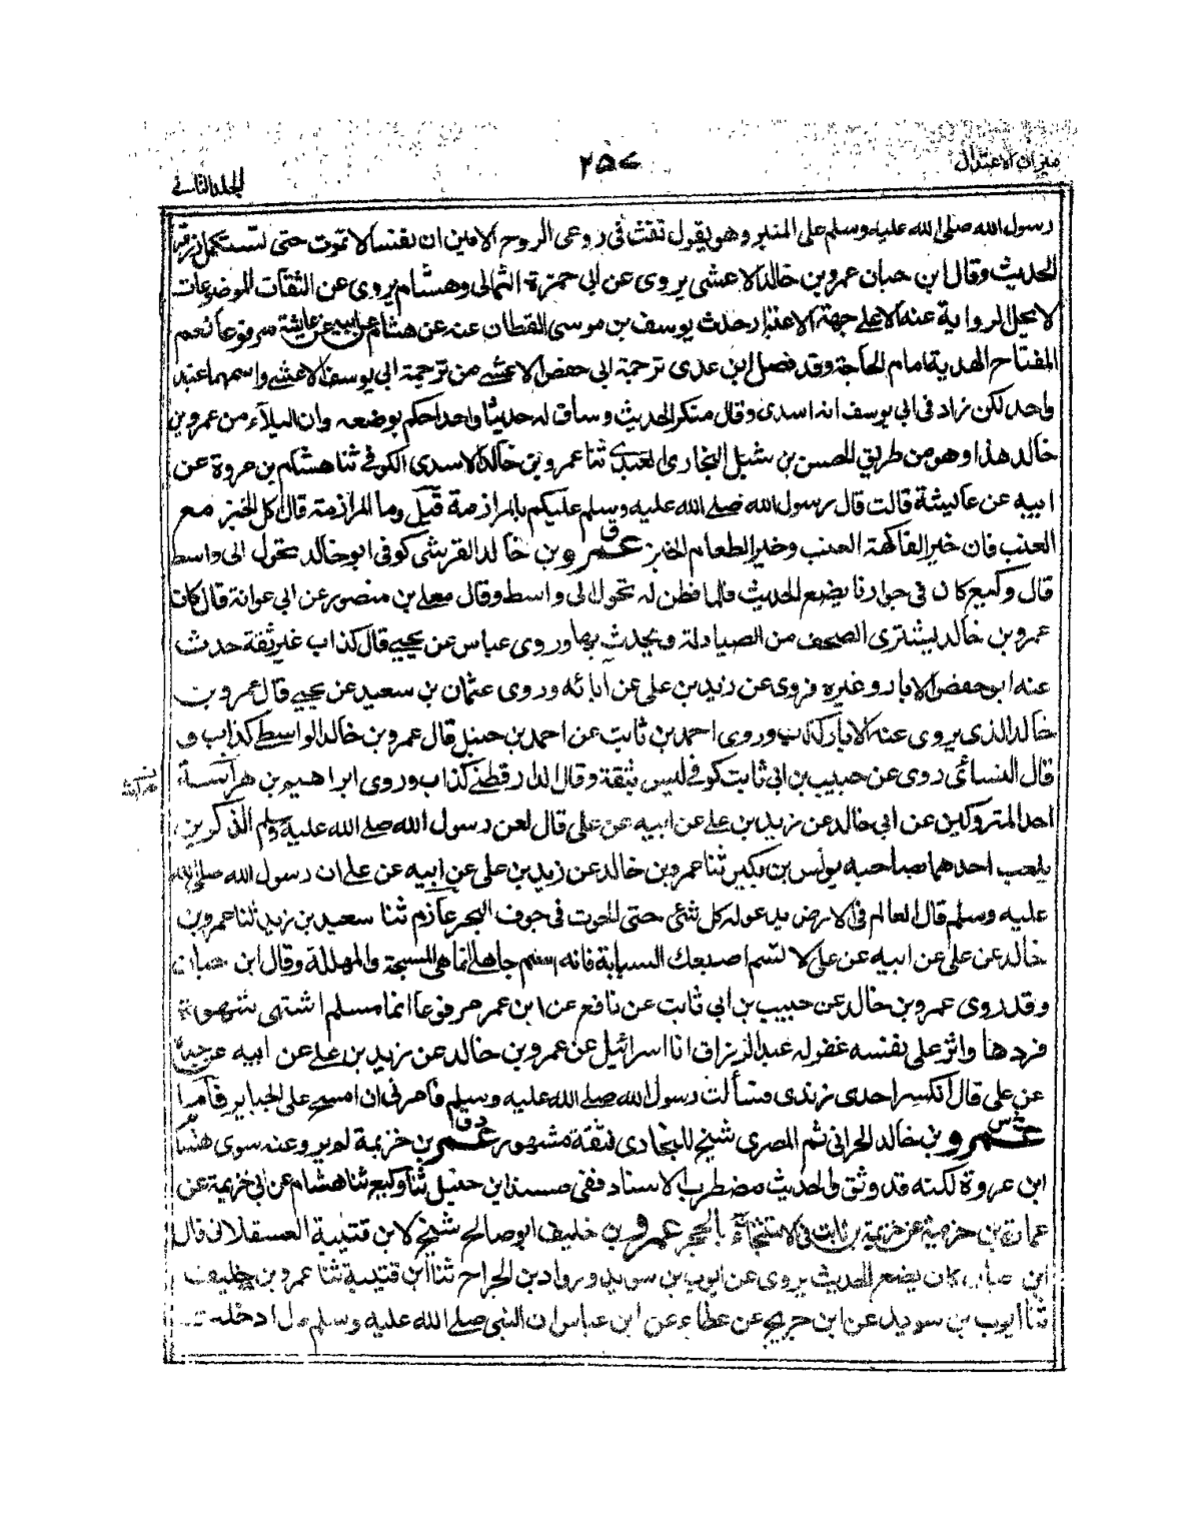 ميزان الاعتدال
٢٥٧
الجلد الثانى
رسول الله صلى الله عليه وسلم على المنبر وهو يقول نفث فى روعى الروح الامين ان نفسا لا تموت حتى تستكمل رزقها
الحديث وقال ابن حبان عمرو بن خالد الاعشى يروى عن ابى حمزة الثمالى وهشام يروى عن الثقات الموضوعات
لا تحل الرواية عنه الا على جهة الاعتبار حدث يوسف بن موسى القطان عنه عن هشام عن ابيه عن عايشة مرفوعا نعم
المفتاح الهدية امام الحاجة وقد فصل ابن عدى ترجمة ابى حفص الاعشى من ترجمة ابى يوسف الاعشى واسمهما عنده
واحد لكن زاد فى ابى يوسف انه اسدى وقال منكر الحديث وساق له حديثا واحدا حكم بوضعه وان البلاء من عمرو بن
خالد هذا وهو من طريق الحسن بن شبل البخارى العبدى ثنا عمرو بن خالد الاسدى الكوفى ثنا هشام بن عروة عن
ابيه عن عايشة قالت قال رسول الله صلى الله عليه وسلم عليكم بالمرازمة قيل وما المرازمة قال اكل الخبز مع
العنب فان خير الفاكهة العنب وخير الطعام الخبز ق عمرو بن خالد القرشى كوفى ابو خالد تحول الى واسط
قال وكيع كان فى جوارنا يضع الحديث فلما فطن له تحول الى واسط وقال معلى بن منصور عن ابى عوانة قال كان
عمرو بن خالد يشترى الصحف من الصيادلة ويحدث بها وروى عباس عن يحيى قال كذاب غير ثقة حدث
عنه ابو حفص الابار وغيره فروى عن زيد بن على عن آبائه وروى عثمان بن سعيد عن يحيى قال عمرو بن
خالد الذى يروى عنه الابار كذاب وروى احمد بن ثابت عن احمد بن حنبل قال عمرو بن خالد الواسطى كذاب و
قال النسائى روى عن حبيب بن ابى ثابت كوفى ليس بثقة وقال الدارقطنى كذاب وروى ابراهيم بن هراسة
احد المتروكين عن ابى خالد عن زيد بن على عن ابيه عن على قال لعن رسول الله صلى الله عليه وسلم الذكرين
يلعب احدهما صاحبه يونس بن بكير ثنا عمرو بن خالد عن زيد بن على عن ابيه عن على ان رسول الله صلى الله
عليه وسلم قال العالم فى الارض يدعو له كل شئ حتى الحوت فى جوف البحر عازم ثنا سعيد بن زيد ثنا عمرو بن
خالد عن على عن ابيه عن على لا تسم اصبعك السبابة فانه اسم جاهلى انما هى المسبحة والمهللة وقال ابن حبان
وقد روى عمرو بن خالد عن حبيب بن ابى ثابت عن نافع عن ابن عمر مرفوعا انما مسلم اشتهى شهوة
فردها واثر على نفسه غفر له عبد الرزاق انا اسرائيل عن عمرو بن خالد عن زيد بن على عن ابيه عن جده
عن على قال انكسر احدى زندى فسألت رسول الله صلى الله عليه وسلم فامرنى ان امسح على الجباير
خ س عمرو بن خالد الحرانى ثم المصرى شيخ للبخارى ثقة مشهور د ق عمرو بن خزيمة لم يرو عنه سوى هشام
ابن عروة لكنه قد وثق والحديث مضطرب الاسناد ففى مسند ابن حنبل ثنا وكيع ثنا هشام عن ابى خزيمة عن
عمارة بن خزيمة عن خزيمة بن ثابت فى الاستنجاء بالحجر عمرو بن خليف ابو صالح شيخ لابن قتيبة العسقلانى قال
ابن حبان كان يضع الحديث يروى عن ايوب بن سويد ورواد بن الجراح ثنا ابن قتيبة ثنا عمرو بن خليف
ثنا ايوب بن سويد عن ابن جريج عن عطاء عن ابن عباس ان النبى صلى الله عليه وسلم قال ادخلت